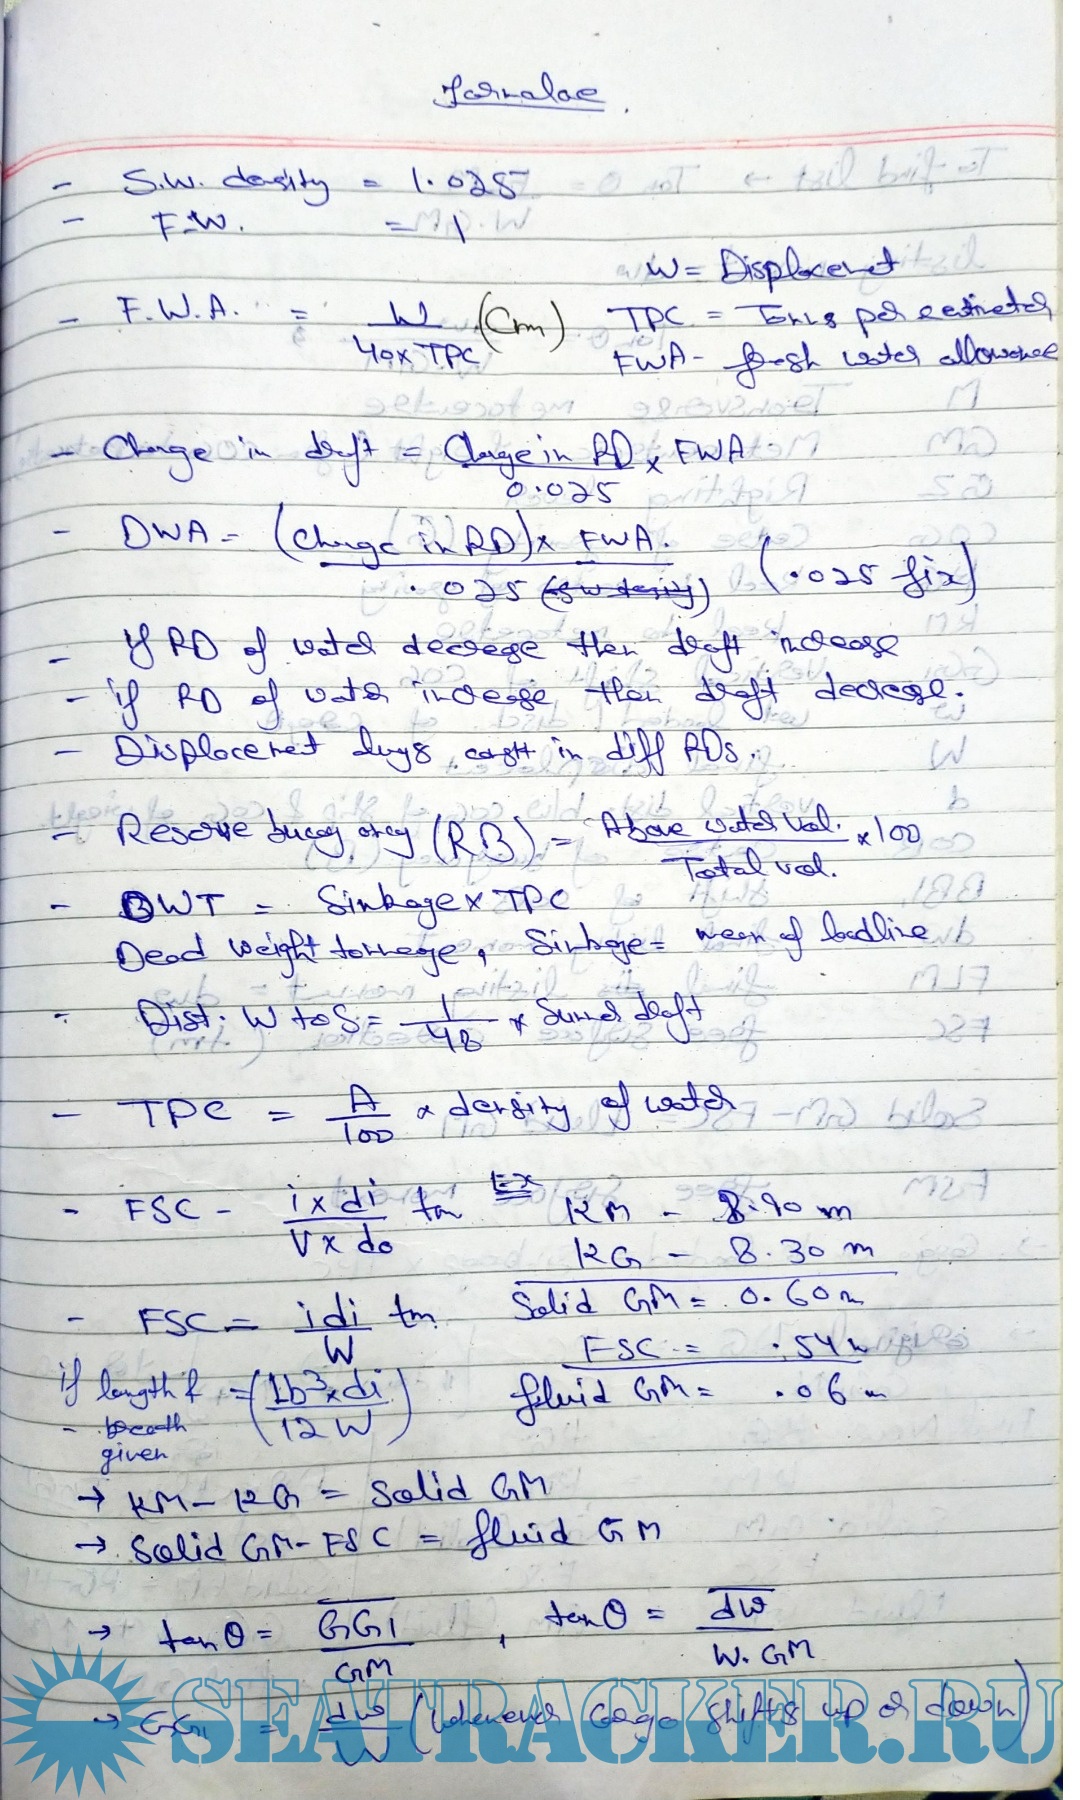 Formulae.
- S.W. density = 1.025
- F.W. = 1
W = Displacement
- F.W.A. = W / 40 x TPC (Cm)
TPC = Tonns per centimeter
FWA - fresh water allowance
- Change in draft = Change in RD / 0.025 x FWA
- DWA = (Change in RD) x FWA. / .025 (.025 fix)
- if RD of water decrease then draft increase
- if RD of water increase then draft decrease.
- Displacement always const in diff RDs.
- Reserve buoyancy (RB) = Above water vol. / Total vol. x 100
- DWT = Sinkage x TPC
Dead weight tonnage, Sinkage = mean of loadline
- Dist. W to S = 1/48 x Summer draft
- TPC = A/100 x density of water
- FSC - i x di / V x do tm
Ex KM - 8.90 m
KG - 8.30 m
Solid GM = 0.60 m
FSC = .54 m
fluid GM = .06 m
- FSC = idi / W tm
if length & breath given = (lb³ x di / 12 W)
→ KM - KG = Solid GM
→ Solid GM - FSC = fluid GM
→ tan θ = GG1 / GM , tan θ = dw / W. GM
→ GG1 = dw / W (whenever cargo shifts up or down)
SEATRACKER.RU